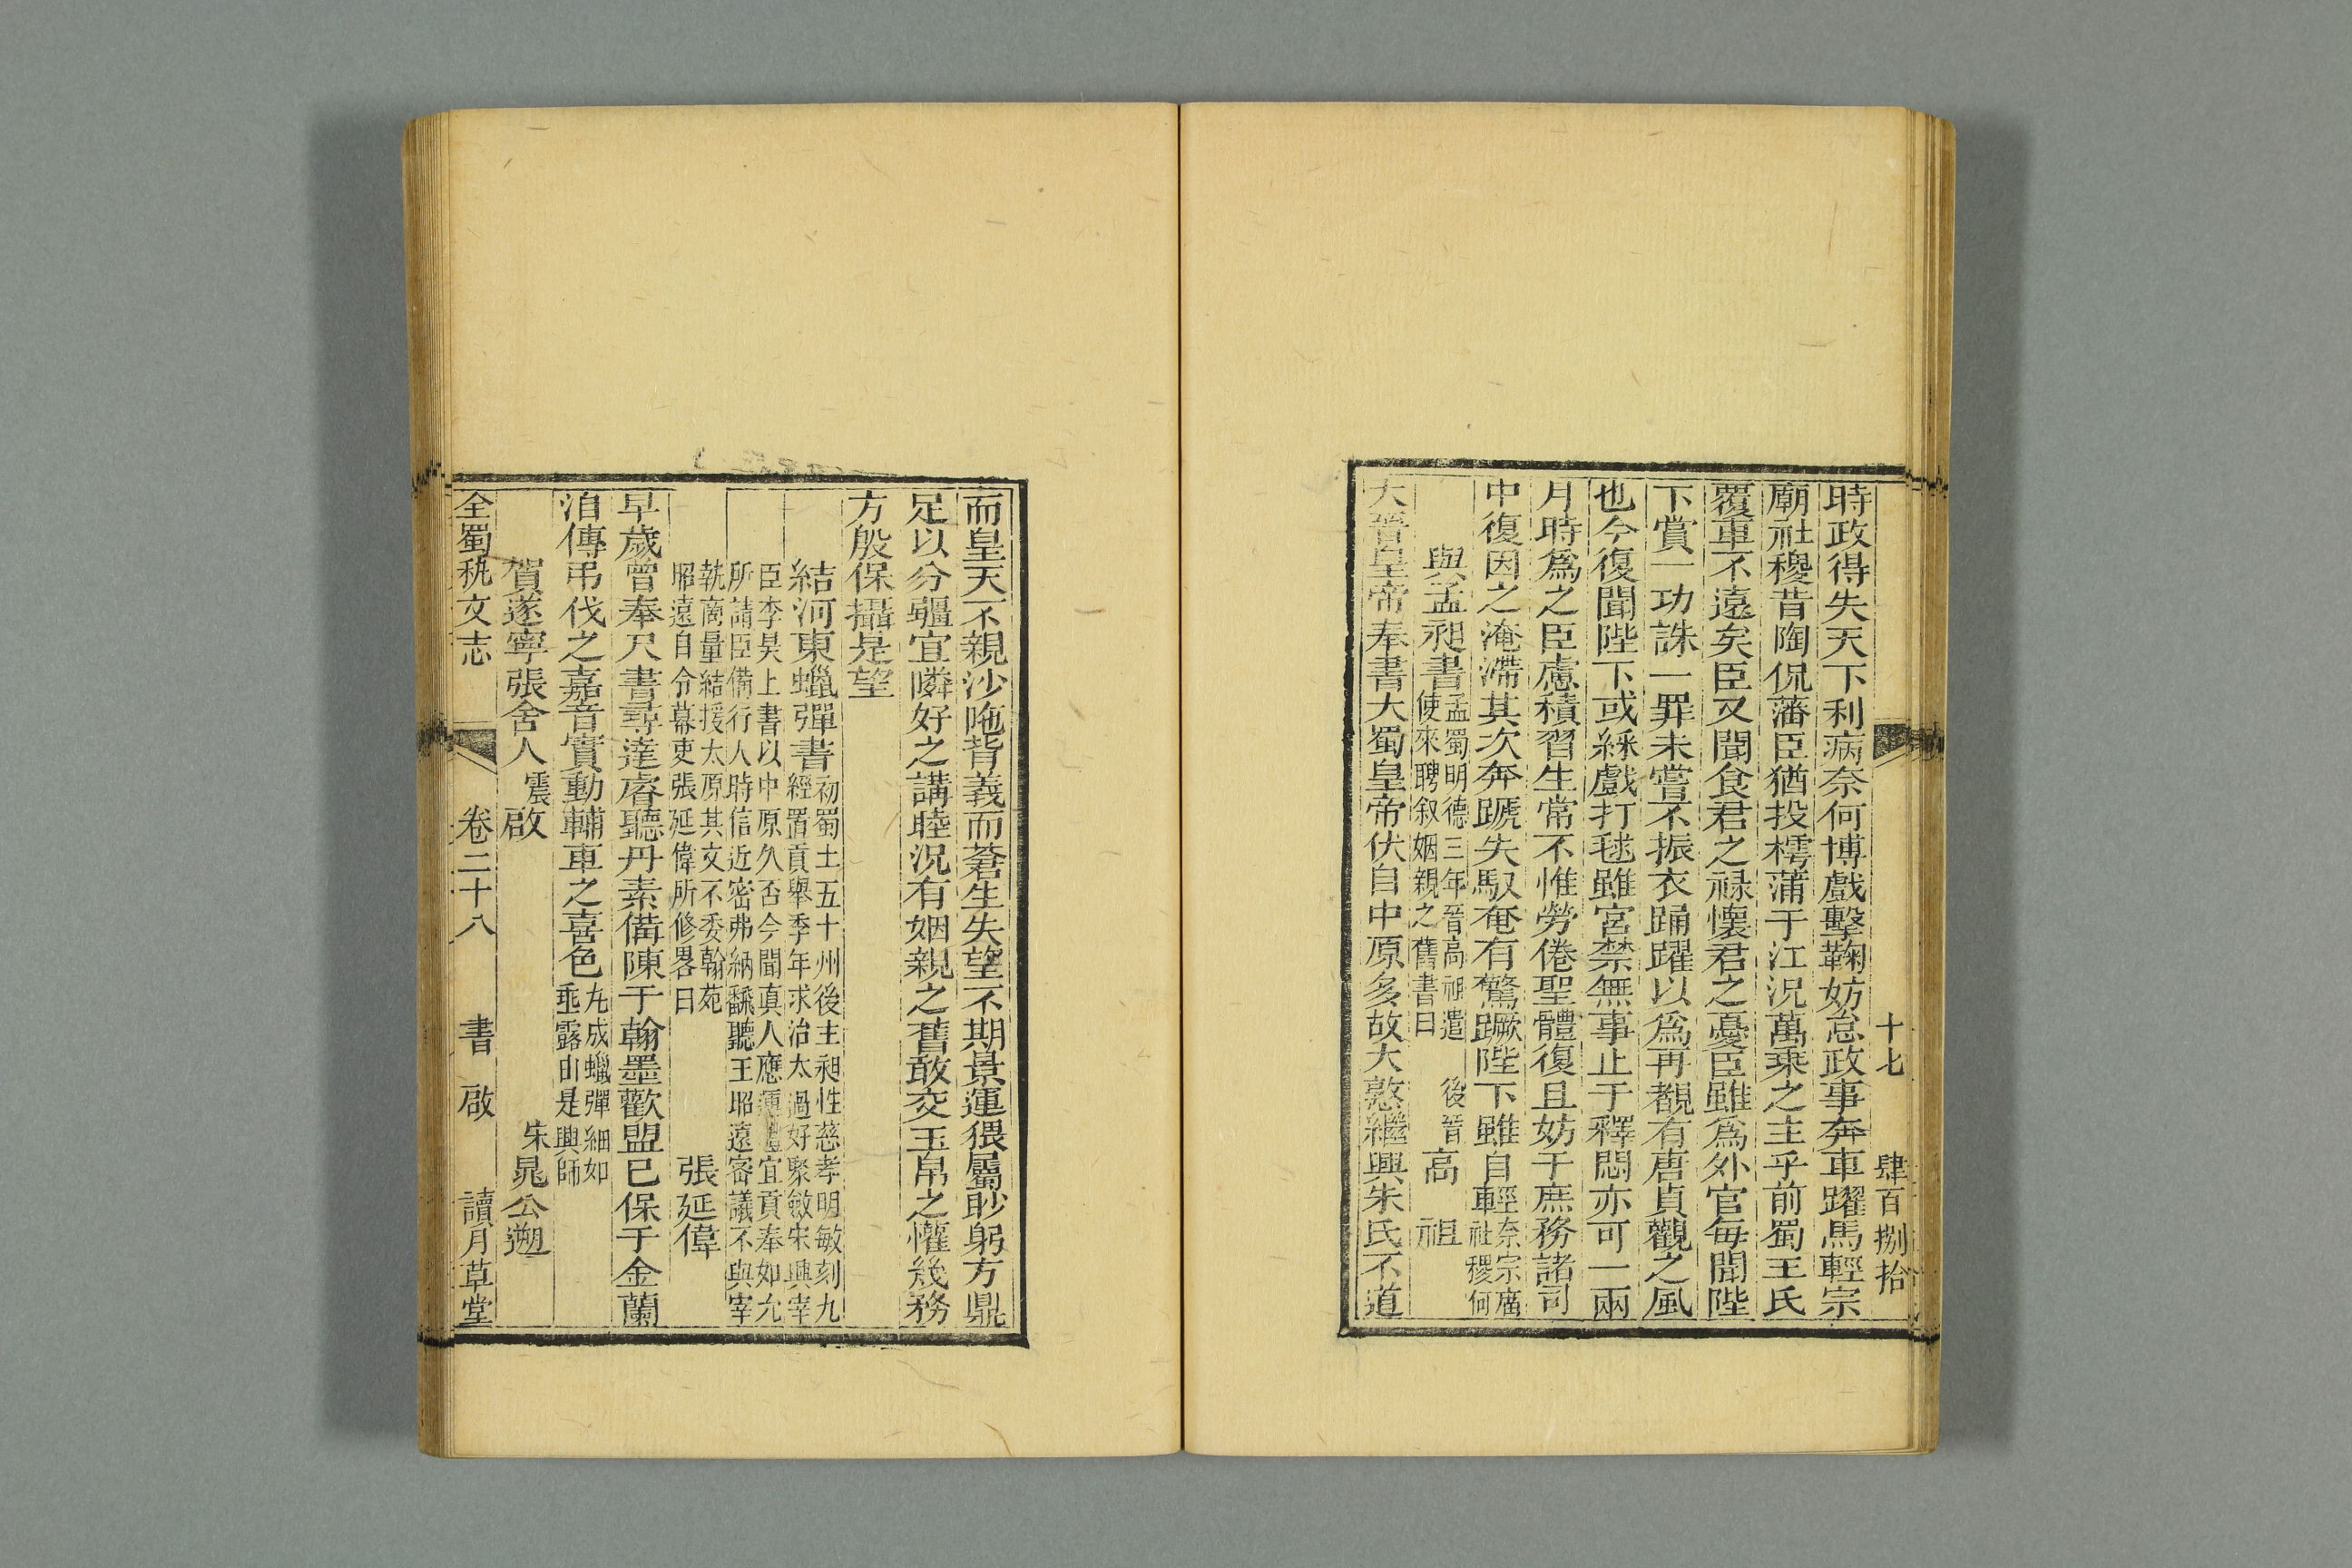 十七 肆百捌拾
時政得失天下利病奈何博戲擊鞠妨怠政事奔車躍馬輕宗
廟社稷昔陶侃藩臣猶投樗蒲于江況萬乗之主乎前蜀王氏
覆車不遠矣臣又聞食君之禄懷君之憂臣雖為外官每聞陛
下賞一功誅一罪未嘗不振衣踊躍以為再覩有唐貞觀之風
也今復聞陛下或綵戲打毬雖宮禁無事止于釋悶亦可一兩
月時為之臣慮積習生常不惟勞倦聖體復且妨于庶務諸司
中復因之淹滯其次奔蹏失馭奄有驚蹶陛下雖自輕奈宗廟社稷何
與孟昶書孟蜀明德三年晉高祖遣使來聘叙姻親之舊書曰 後晉高祖
大晉皇帝奉書大蜀皇帝伏自中原多故大憝繼興朱氏不道
而皇天不親沙陁背義而蒼生失望不期景運猥屬眇躬方鼎
足以分疆宜隣好之講睦況有姻親之舊敢交玉帛之懽幾務
方殷保攝是望
結河東蠟彈書初蜀土五十州後主昶性慈孝明敏刻九經置貢舉季年求治太過好聚斂宋興宰
臣李昊上書以中原久否今聞真人應運宜貢奉如允所請臣備行人時信近密弗納繇聽王昭遠密議不與宰
執商量結援太原其文不委翰苑昭遠自令幕吏張延偉所修畧曰 張延偉
早歲曾奉尺書尋達睿聽丹素備陳于翰墨歡盟已保于金蘭
洎傳弔伐之嘉音實動輔車之喜色九成蠟彈細如亟露由是興師
賀遂寧張舍人震啟 宋晁公遡
全蜀秇文志 卷二十八 書 啟 讀月草堂